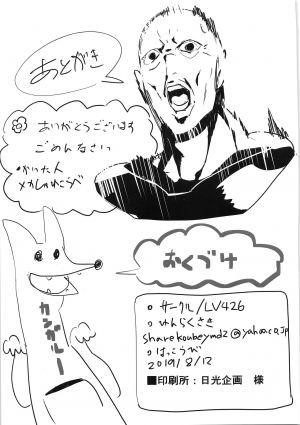 あとがき
ありがとうございます
ごめんなさいっ
かいた人
メカしゃれこうべ
おくづけ
カンガルー
○サークル/LV426
○れんらくさき
sharekoubeymd2@yahoo.co.jp
○はっこうび
2019/8/12
■印刷所：日光企画　様